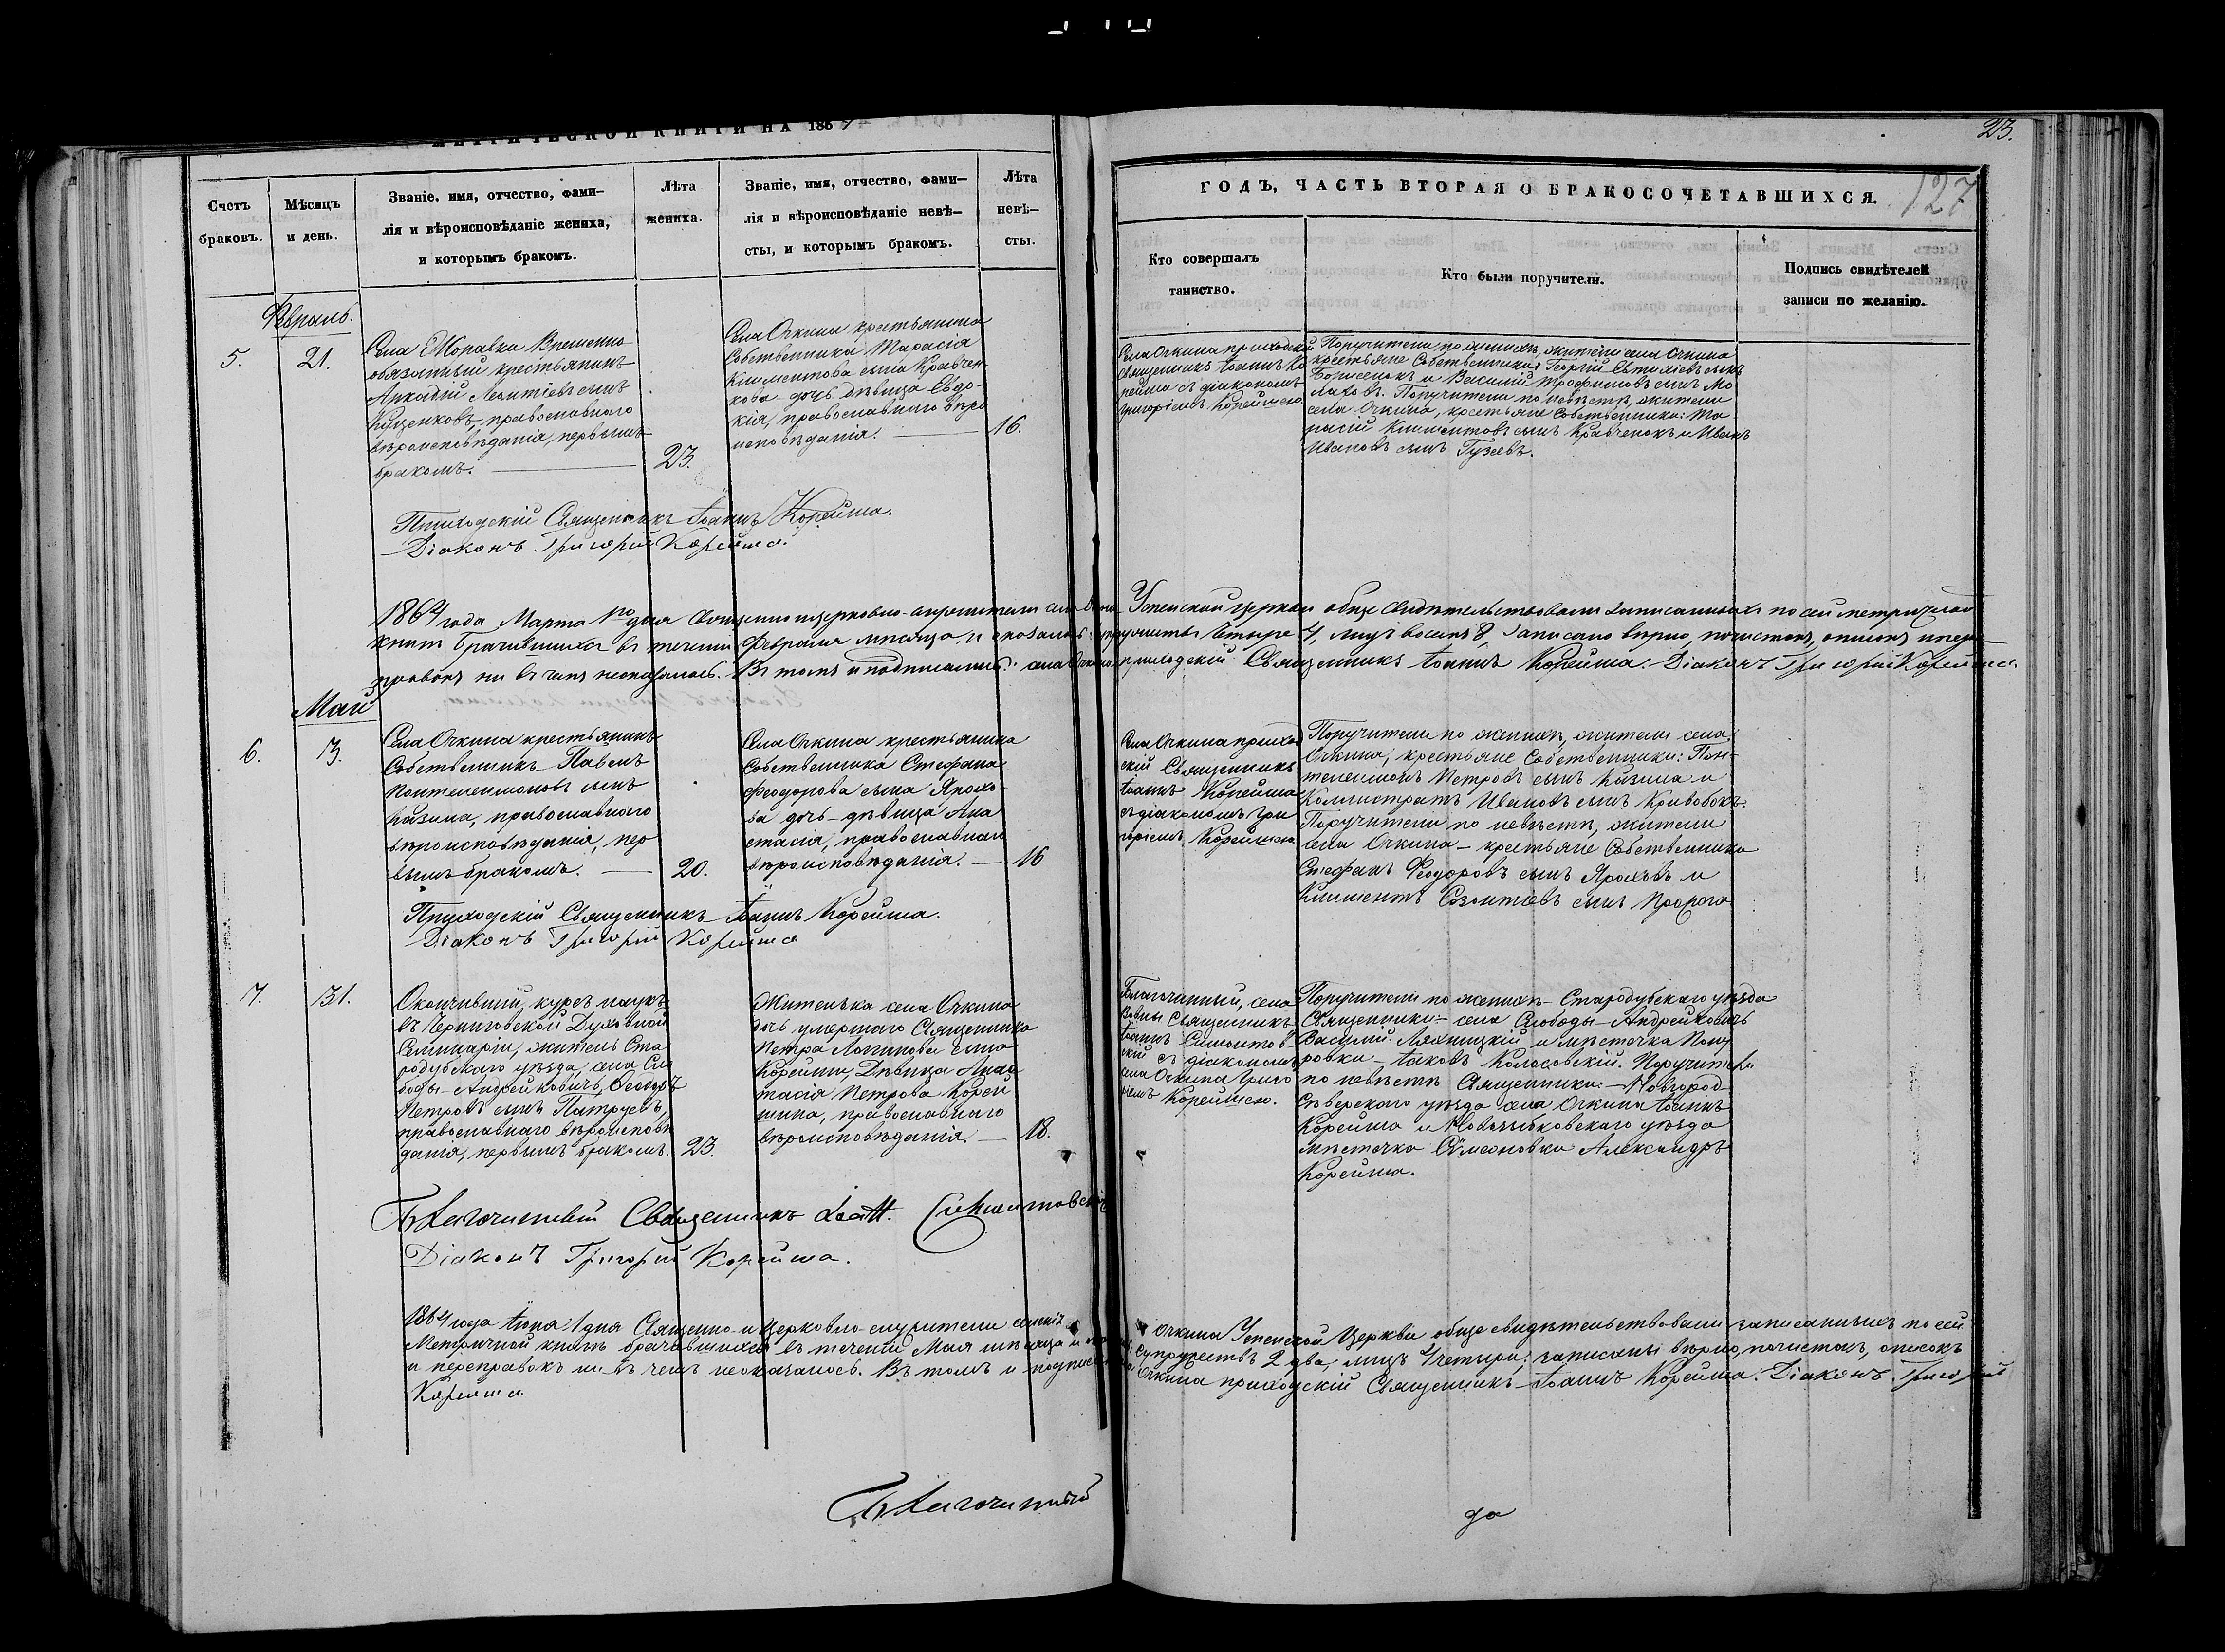 МЕТРИЧЕСКОЙ КНИГИ НА 1864
23.
ГОДЪ, ЧАСТЬ ВТОРАЯ О БРАКОСОЧЕТАВШИХСЯ.
127
Счетъ
браковъ.
Мѣсяцъ
и день.
Званіе, имя, отчество, фами-
лія и вѣроисповѣданіе жениха,
и которымъ бракомъ.
Лѣта
жениха.
Званіе, имя, отчество, фами-
лія и вѣроисповѣданіе невѣ-
сты, и которымъ бракомъ.
Лѣта
невѣ-
сты.
Кто совершалъ
таинство.
Кто были поручители.
Подпись свидѣтелей
записи по желанію.
Февраль.
5.
21.
Села Моравки Временно
обязанный крестьянинъ
Аркадій Леонтіевъ сынъ
Кищенковъ, православнаго
вѣроисповѣданія, первымъ
бракомъ.
23.
Села Очкина крестьянина
Собственника Тарасія
Климентова сына Кравчен-
кова дочь дѣвица Евдо-
кія, православнаго вѣро
исповѣданія.
16.
Села Очкина приходскій
Священникъ Іоаннъ Ко
рейша съ діакономъ
Григоріемъ Корейшею
Поручители по женихѣ, жители села Очкина
крестьяне Собственники: Георгій Евтихіевъ сынъ
Борисенокъ и Василій Трофимовъ сынъ Мо
лаховъ. Поручители по невѣстѣ, жители
села Очкина, крестьяне Собственники: Та-
расій Климентовъ сынъ Кравченокъ и Иванъ
Ивановъ сынъ Гузеевъ.
Приходскій Священникъ Іоаннъ Корейша.
Діаконъ Григорій Корейша.
1864 года Марта 1го дня Священно и церковно-служители села Очкина Успенской церкви обще свидѣтельствовали записанныхъ по сей метричной
книгѣ брачившихся въ теченіи Февраля мѣсяца, и оказалось супружествъ четыре 4, лицъ восемь 8, записано вѣрно, почистокъ, описокъ и пере-
правокъ ни въ чемъ неоказалось. Въ томъ и подписались: села Очкина приходскій Священникъ Іоаннъ Корейша. Діаконъ Григорій Корейша.
Май
6.
13.
Села Очкина крестьянинъ
Собственникъ Павелъ
Пантелеимоновъ сынъ
Казима, православнаго
вѣроисповѣданія, пер
вымъ бракомъ.
20.
Села Очкина крестьянина
Собственника Стефана
Феодорова сына Ярохо-
ва дочь - дѣвица Ана
стасія, православнаго
вѣроисповѣданія.
16
Села Очкина приход
скій Священникъ
Іоаннъ Корейша
съ діакономъ Гри
горіемъ Корейшею
Поручители по женихѣ, жители села
Очкина, крестьяне Собственники: Пан-
телеимонъ Петровъ сынъ Казима и
Каллистратъ Ивановъ сынъ Кривобокъ.
Поручители по невѣстѣ, жители
села Очкина - крестьяне Собственники
Стефанъ Феодоровъ сынъ Ярохъвъ и
Климентъ Созонтіевъ сынъ
Приходскій Священникъ Іоаннъ Корейша.
Діаконъ Григорій Корейша
7.
31.
Окончившій курсъ наукъ
въ Черниговской Духовной
Семинаріи, житель Ста
родубскаго уѣзда, села Сло
боды-Андрейковичъ, Ѳеодоръ
Петровъ сынъ Патруевъ,
православнаго вѣроисповѣ
данія, первымъ бракомъ.
23.
Жителька села Очкина
дочь умершаго Священника
Петра Логгинова сына
Корейши, Дѣвица Анас
тасія Петрова Корей
шина, православнаго
вѣроисповѣданія.
18.
Благочинный, села
Священникъ
Іоаннъ Симонтов-
скій съ діакономъ
села Очкина Григо
ріемъ Корейшею.
Поручители по женихѣ - Стародубскаго уѣзда
Священники: - села Слободы-Андрейковичъ
Василій Ляхницкій и мѣстечка Пону
ровки - Іаковъ Колосовскій. Поручители
по невѣстѣ Священники: - Новгород
Сѣверскаго уѣзда села Очкина Іоаннъ
Корейша и Новозыбковскаго уѣзда
мѣстечка Семеновки Александръ
Корейша.
Благочинный Священникъ Іоан. Симонтовскій
Діаконъ Григорій Корейша.
1864 года Іюня 1 дня Священно и Церковно-служители села Очкина Успенской Церкви обще свидѣтельствовали записанныхъ по сей
Метричной книгѣ брачившихся въ теченіи Мая мѣсяца и супружествъ 2 два, лицъ 4 четыре; записаны вѣрно, почистокъ, описокъ
и переправокъ ни въ чемъ неоказалось. Въ томъ и подписа Очкина приходскій Священникъ Іоаннъ Корейша. Діаконъ Григорій
Корейша
Благочинный